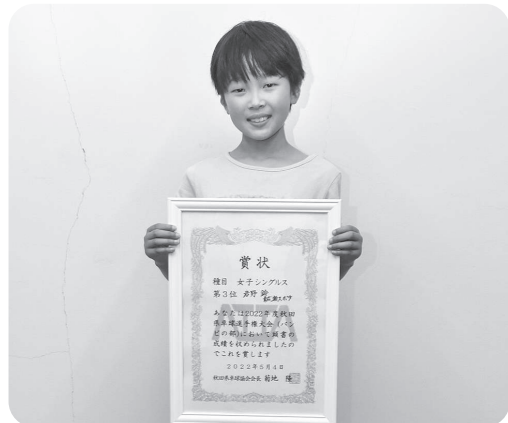 賞状
種目 女子シングルス
第3位
あなたは2022年度秋田
県卓球選手権大会(バン
ビの部)において頭書の
成績を収められましたの
でこれを賞します
2022年5月4日
秋田県卓球協会会長 菊地 隆